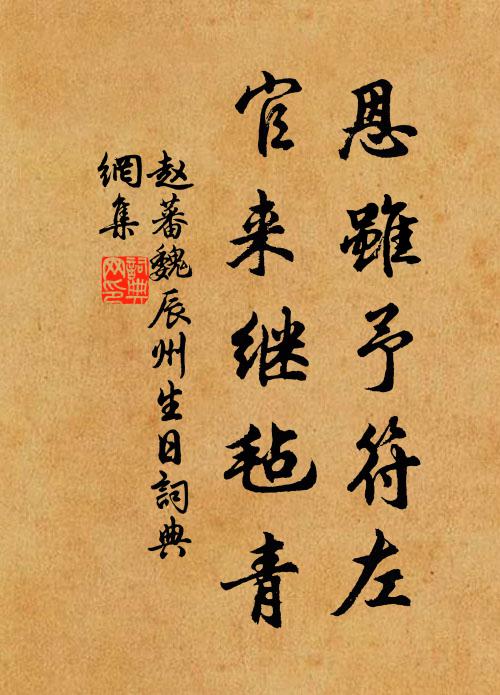 恩雖予符左
官来继毡青
赵蕃魏辰州生日詞典
網集
詞典
网印